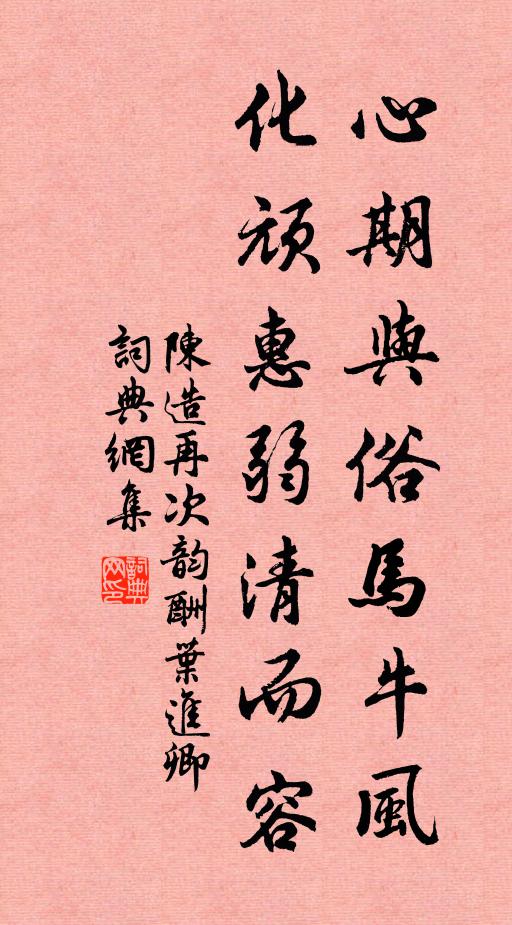 心期與俗馬牛風
化頑惠弱清而容
陳造再次韵酬葉進卿
詞典網集
詞典网印